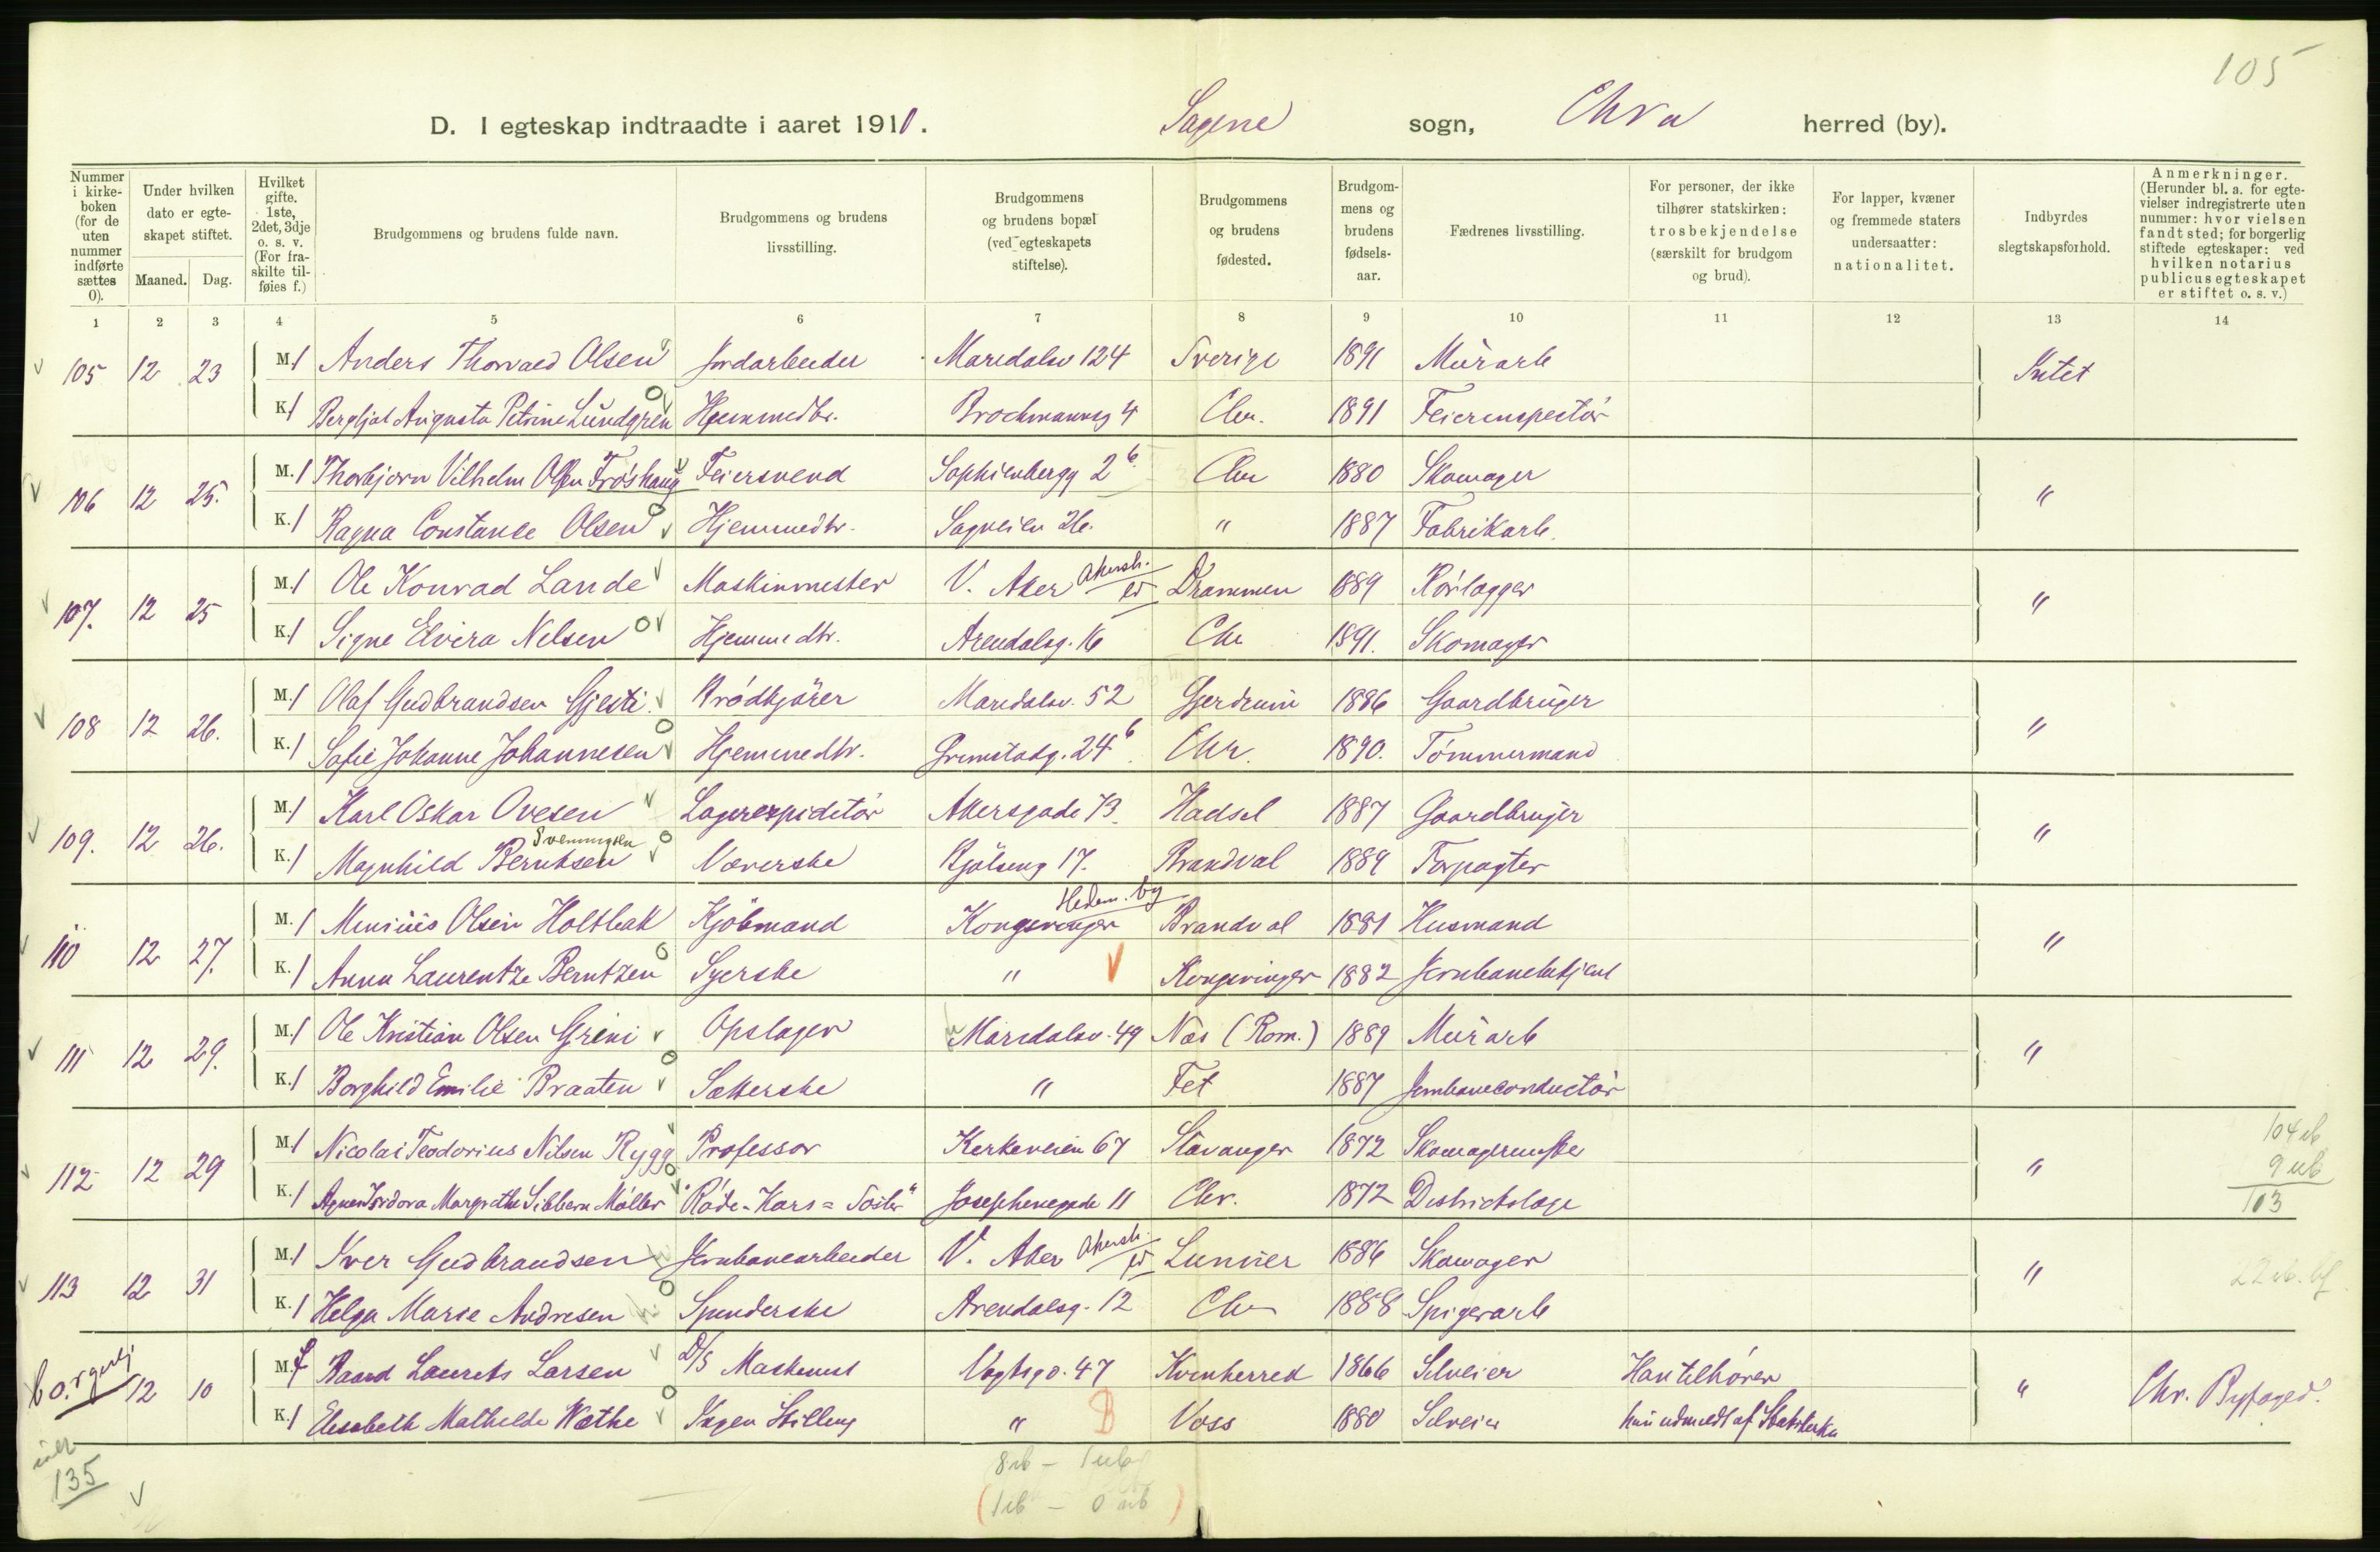 105
D. I egteskap indtraadte i aaret 1911. Sagene sogn, Chra herred (by).
Nummer i kirkeboken (for de uten nummer indførte sættes 0).
Under hvilken dato er egteskapet stiftet. Maaned. Dag.
Hvilket gifte. 1ste, 2det, 3dje o. s. v. (For fraskilte tilføies f.)
Brudgommens og brudens fulde navn.
Brudgommens og brudens livsstilling.
Brudgommens og brudens bopæl (ved egteskapets stiftelse).
Brudgommens og brudens fødested.
Brudgommens og brudens fødselsaar.
Fædrenes livsstilling.
For personer, der ikke tilhører statskirken: trosbekjendelse (særskilt for brudgom og brud).
For lapper, kvæner og fremmede staters undersaatter: nationalitet.
Indbyrdes slegtskapsforhold.
Anmerkninger. (Herunder bl. a. for egtevielser indregistrerte uten nummer: hvor vielsen fandt sted; for borgerlig stiftede egteskaper: ved hvilken notarius publicus egteskapet er stiftet o. s. v.)
1 2 3 4 5 6 7 8 9 10 11 12 13 14
105 12 23 M. 1 Anders Thorvald Olsen Jordarbeider Maridalsv 124 Sverige 1891 Murarb Intet
K. 1 Bergljot Augusta Petrine Lundgren Hjemmedtr. Brochmannsg 4 Chr. 1891 Feierinspectør
106 12 25. M. 1 Thorbjørn Vilhelm Olsen Frøshaug Feiersvend Sophienbergg 2 b. Chr 1880 Skomager "
K. 1 Ragna Constance Olsen Hjemmedtr. Sagveien 26. " 1887 Fabrikarb.
107. 12 25 M. 1 Ole Konrad Lande Maskinmester V. Aker Akersh. Drammen 1889 Rørlægger "
K. 1 Signe Elvira Nelsen Hjemmedtr. Arendalsg. 16 Chr 1891. Skomager
108 12 26. M. 1 Olaf Gudbrandsen Gjesti Brødkjører Maridalsv. 52 Gjerdrum 1886 Gaardbruger "
K. 1 Sofie Johanne Johannesen Hjemmedtr. Grimstadg. 24 b. Chr. 1890. Tømmermand
109. 12 26. M. 1 Karl Oskar Ovesen Lagerexpiditør Akersgade 73 Hadsel 1887 Gaardbruger "
K. 1 Magnhild Berntsen Sveningsen Væverske Bjølseng 17. Brandval 1889 Forpagter
110 12 27. M. 1 Minius Olsen Holtbak Kjøbmand Kongsvinger Hedm. by Brandval 1881 Husmand "
K. 1 Anna Laurentze Berntzen Syerske " Kongsvinger 1882 Jernbanebetjent
111 12 29. M. 1 Ole Kristian Olsen Greni Opslager Maridalsv. 49 Næs (Rom.) 1889 Murarb "
K. 1 Borghild Emilie Braaten Sætterske " Fet 1887 Jernbaneconductør
112 12 29 M. 1 Nicolai Teodorius Nilsen Rygg Professor Kirkeveien 67 Stavanger 1872 Skomagermester " 104 ib
K. 1 Agnes Isidora Margrethe Sibbern Møller "Røde-Kors=Søster" Josephinegade 11 Chr. 1872 Distriktslæge 9 ub
103
113 12 31 M. 1 Iver Gudbrandsen Jernbanearbeider V. Aker Akersh. Lunner 1886 Skomager "
K. 1 Helga Marie Andresen Spinderske Arendalsg. 12 Chr 1888 Spigerarb
borgerlj 12 10 M. Baard Laurits Larsen D/S Maskinist Vogtsgd. 47 Kvinherred 1866 Selveier Han tilhører " Chr. Byfoged.
K. 1 Elisabeth Mathilde Wæthe Ingen Stilling " B Voss 1880 Selveier hun udmeldt af Statskirken
135
8 ib - 1 ub
(1 ib - 0 ub)